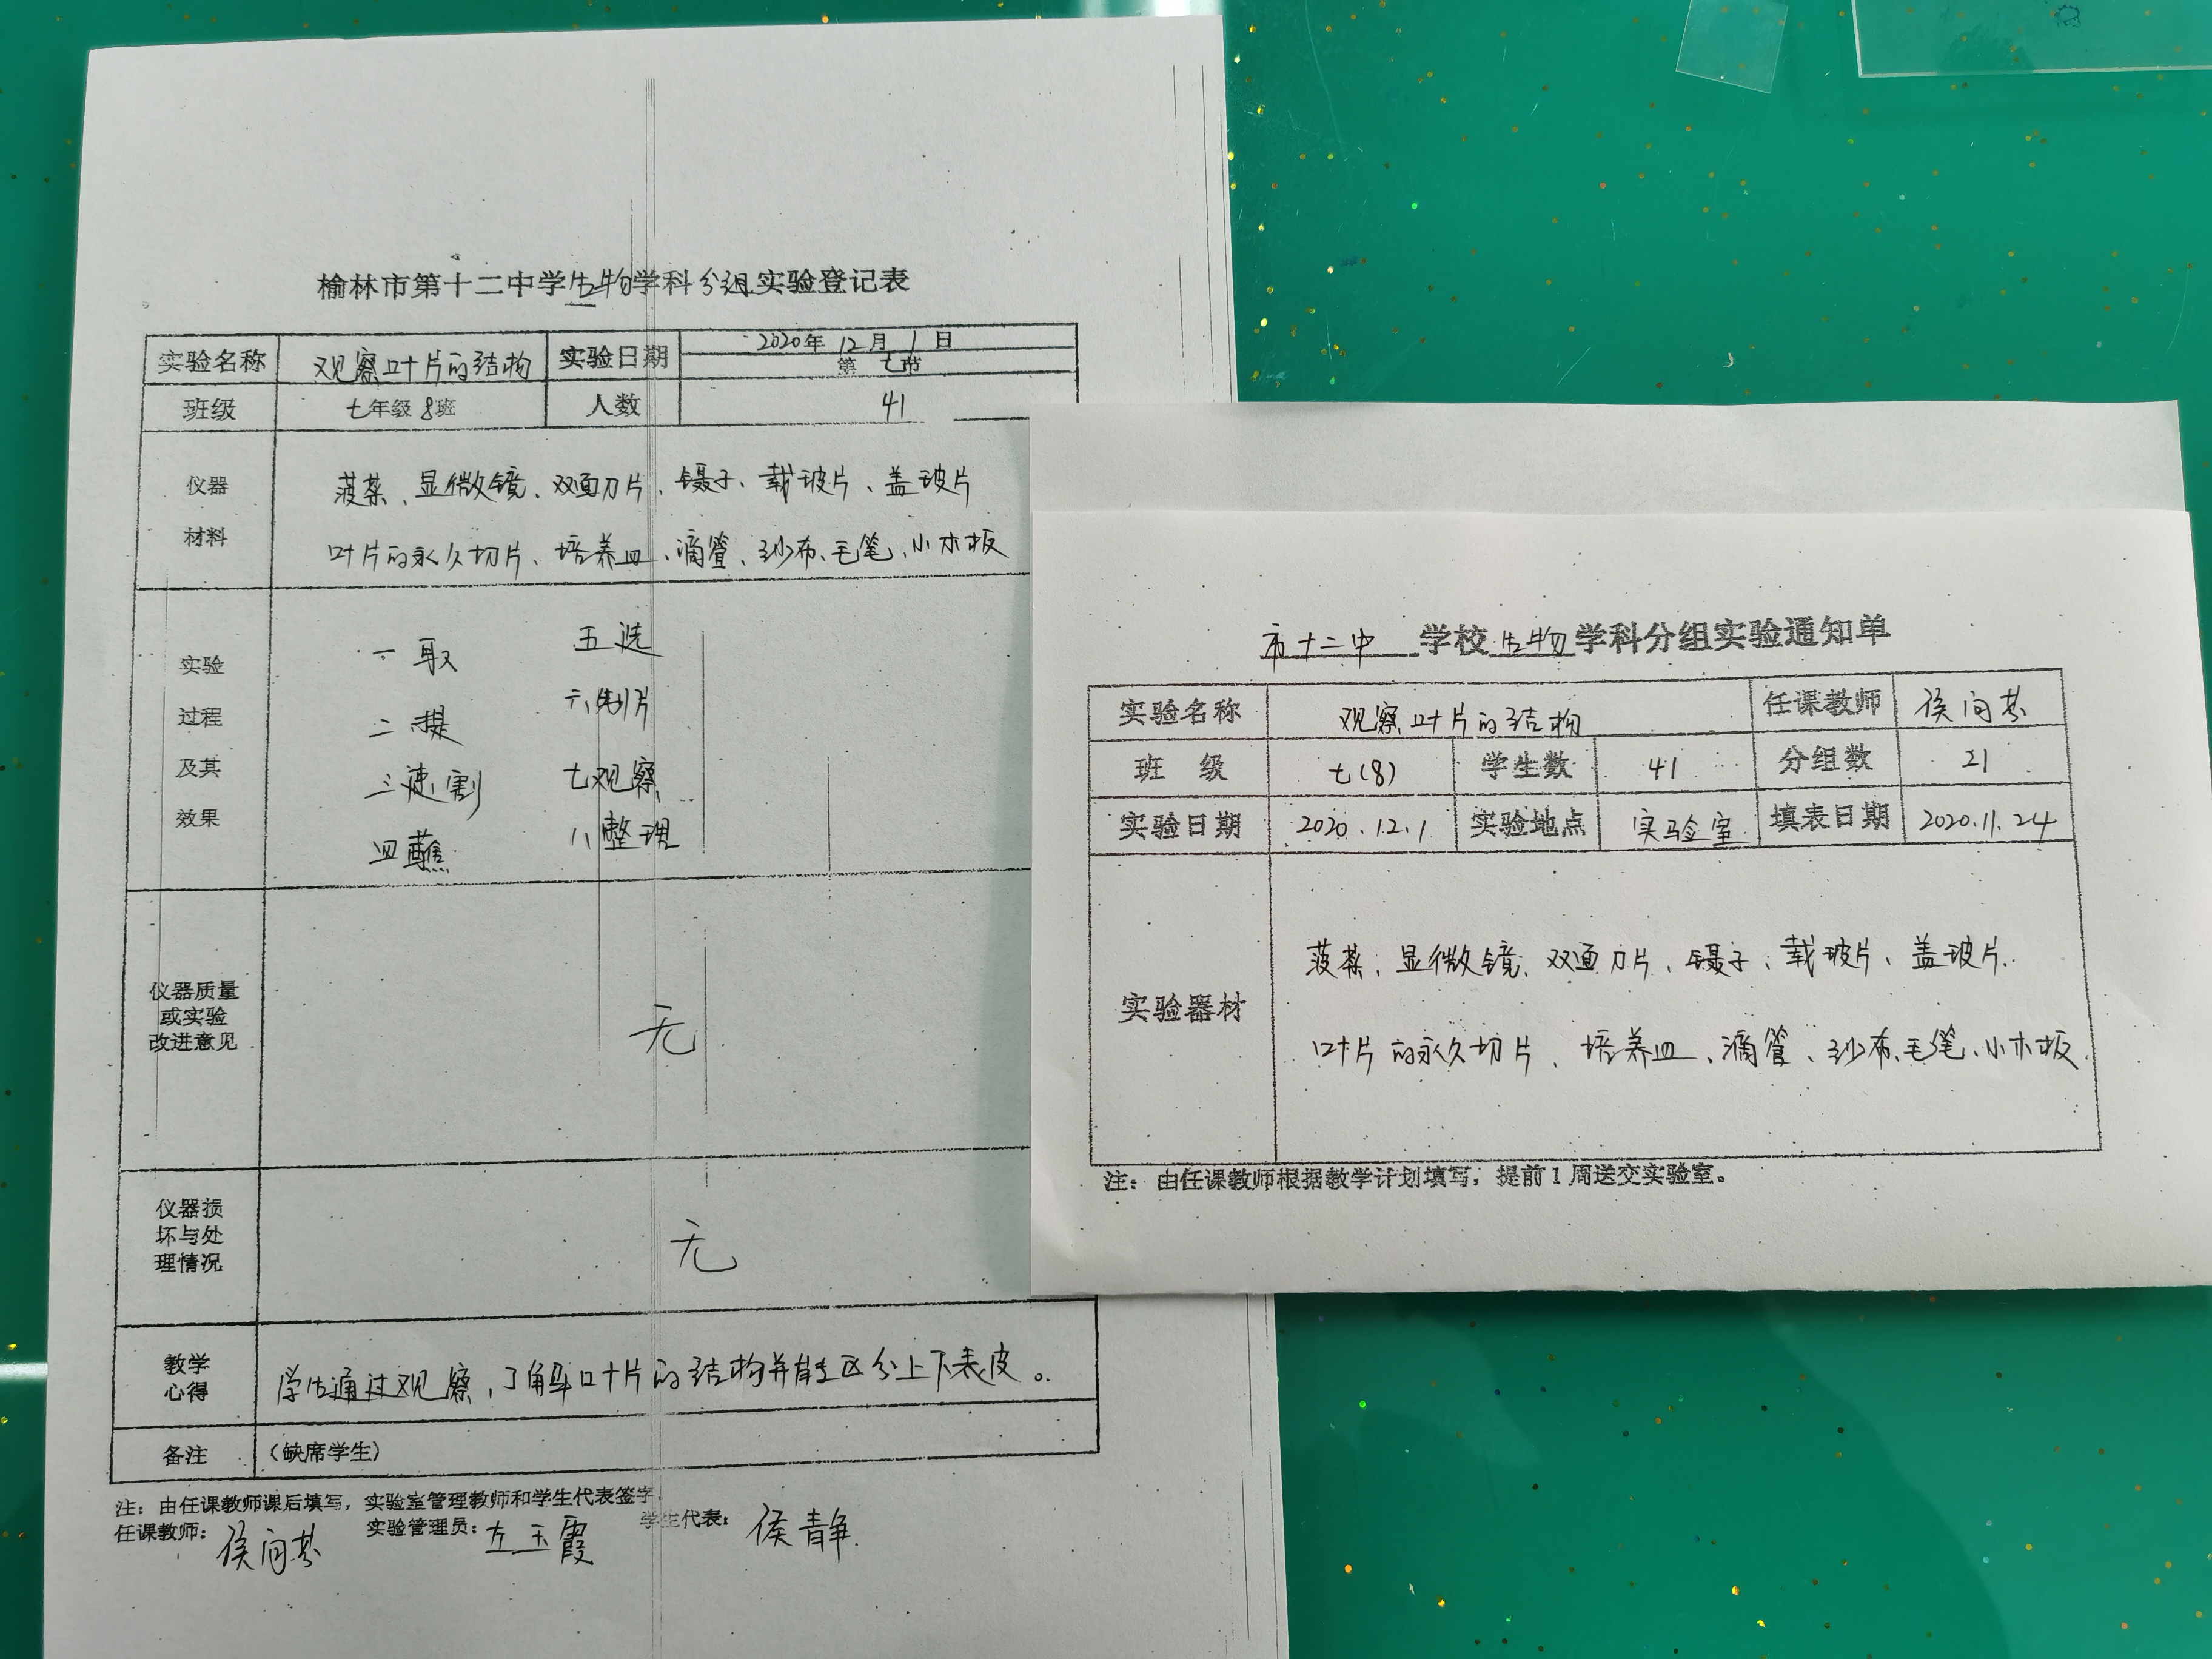 榆林市第十二中学生物学科分组实验登记表
实验名称 观察叶片的结构 实验日期 2020年 12月 1日
第 七节
班级 七年级 8班 人数 41
仪器
材料
菠菜、显微镜、双面刀片、镊子、载玻片、盖玻片
叶片的永久切片、培养皿、滴管、纱布、毛笔、小木板
实验
过程
及其
效果
一 取
二 捏
三 速割
四 蘸
五 选
六 制片
七 观察
八 整理
仪器质量
或实验
改进意见
无
仪器损
坏与处
理情况
无
教学
心得
学生通过观察,了解叶片的结构并能区分上下表皮。
备注 (缺席学生)
注:由任课教师课后填写,实验室管理教师和学生代表签字
任课教师: 实验管理员:左玉霞 学生代表:侯静
市十二中 学校 生物 学科分组实验通知单
实验名称 观察叶片的结构 任课教师
班 级 七(8) 学生数 41 分组数 21
实验日期 2020.12.1 实验地点 实验室 填表日期 2020.11.24
实验器材
菠菜、显微镜、双面刀片、镊子、载玻片、盖玻片.
叶片的永久切片、培养皿、滴管、纱布、毛笔、小木板.
注:由任课教师根据教学计划填写,提前1周送交实验室。